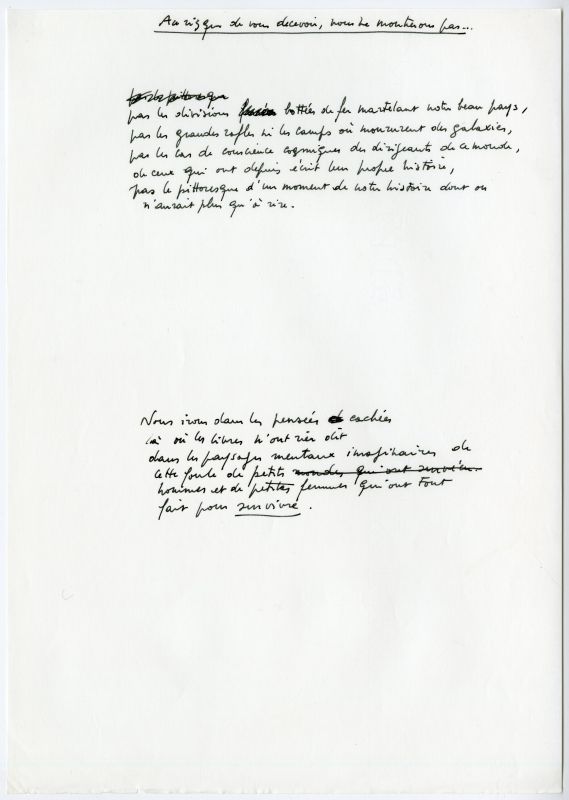 Au risque de vous décevoir, nous ne montrerons pas...
pas le pittoresque
pas les divisions bottées de fer martelant notre beau pays,
pas les grandes rafles ni les camps où moururent des galaxies,
pas les cas de conscience cosmiques des dirigeants de ce monde,
de ceux qui ont depuis écrit leur propre histoire,
pas le pittoresque d'un moment de notre histoire dont on
n'aurait plus qu'à rire.
Nous irons dans les pensées cachées
là où les livres n'ont rien dit
dans les paysages mentaux imaginaires de
cette foule de petits mondes qui ont survécu.
hommes et de petites femmes qui ont tout
fait pour survivre.